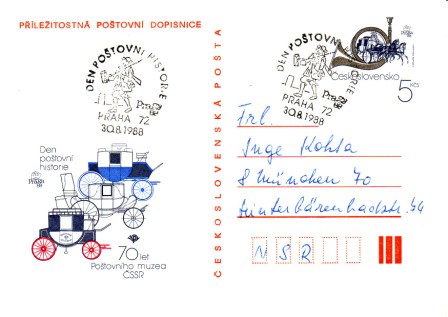 PŘÍLEŽITOSTNÁ POŠTOVNÍ DOPISNICE
DEN POŠTOVNÍ HISTORIE
Praga 88
PRAHA 72
30.8.1988
Den
poštovní
historie
70 let
Poštovního muzea
ČSSR
ČESKOSLOVENSKÁ POŠTA
DEN POŠTOVNÍ HISTORIE
Praga 88
PRAHA 72
30.8.1988
Československo
5 Kčs
Frl.
Inge Kohla
8 München 70
Hinterbärenbadstr. 54
NSR